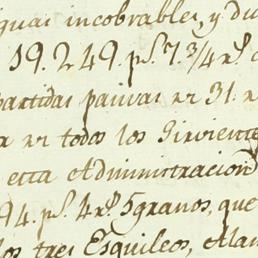 guas incobrables, y du
19.249. p.s 7.3/4 r.s
partidas paivas
a en todos los Sirviente
esta Administracion
94. p.s 4 r.s 5 granos, que
los tres Esquileos, Alam